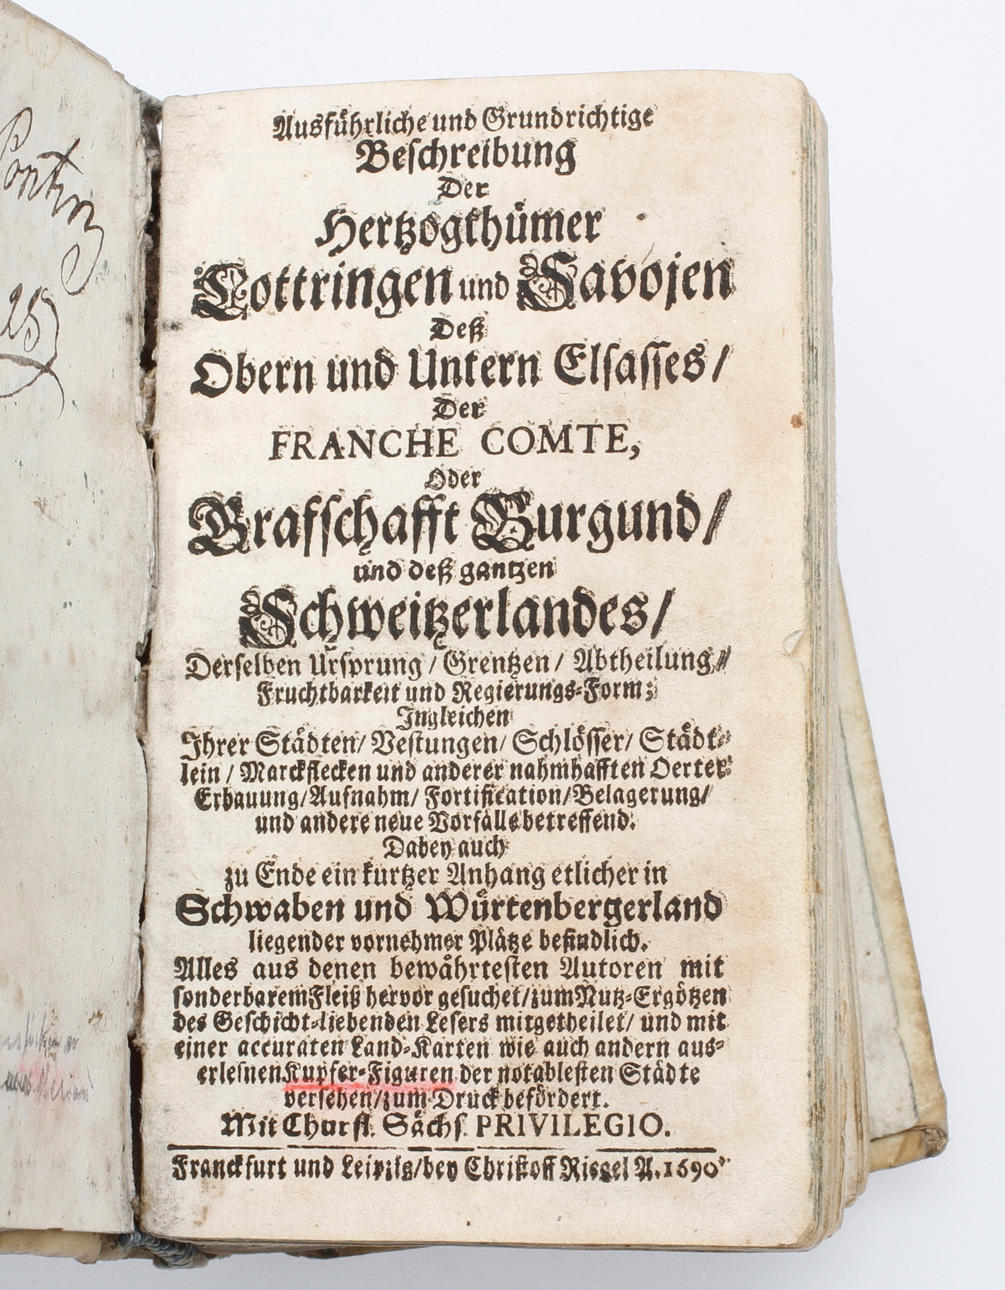 Ausführliche und Grundrichtige
Beschreibung
Der
Hertzogthümer
Lottringen und Savojen
Deß
Obern und Untern Elsasses/
Der
FRANCHE COMTE,
Oder
Grafschafft Burgund/
und deß gantzen
Schweitzerlandes/
Derselben Ursprung/ Grentzen/ Abtheilung/
Fruchtbarkeit und Regierungs-Form;
Ingleichen
Ihrer Städten/ Vestungen/ Schlösser/ Städt-
lein/ Marckflecken und anderer nahmhafften Oerter
Erbauung/ Aufnahm/ Fortification/ Belagerung/
und andere neue Vorfälle betreffend.
Dabey auch
zu Ende ein kurtzer Anhang etlicher in
Schwaben und Würtenbergerland
liegender vornehmer Plätze befindlich.
Alles aus denen bewährtesten Autoren mit
sonderbarem Fleiß hervor gesuchet/ zum Nutz-Ergötzen
des Geschicht-liebenden Lesers mitgetheilet/ und mit
einer accuraten Land-Karten wie auch andern aus-
erlesnen Kupfer-Figuren der notablesten Städte
versehen/ zum Druck befördert.
Mit Churfl. Sächs. PRIVILEGIO.
Franckfurt und Leipzig/ bey Christoff Riegel A. 1690